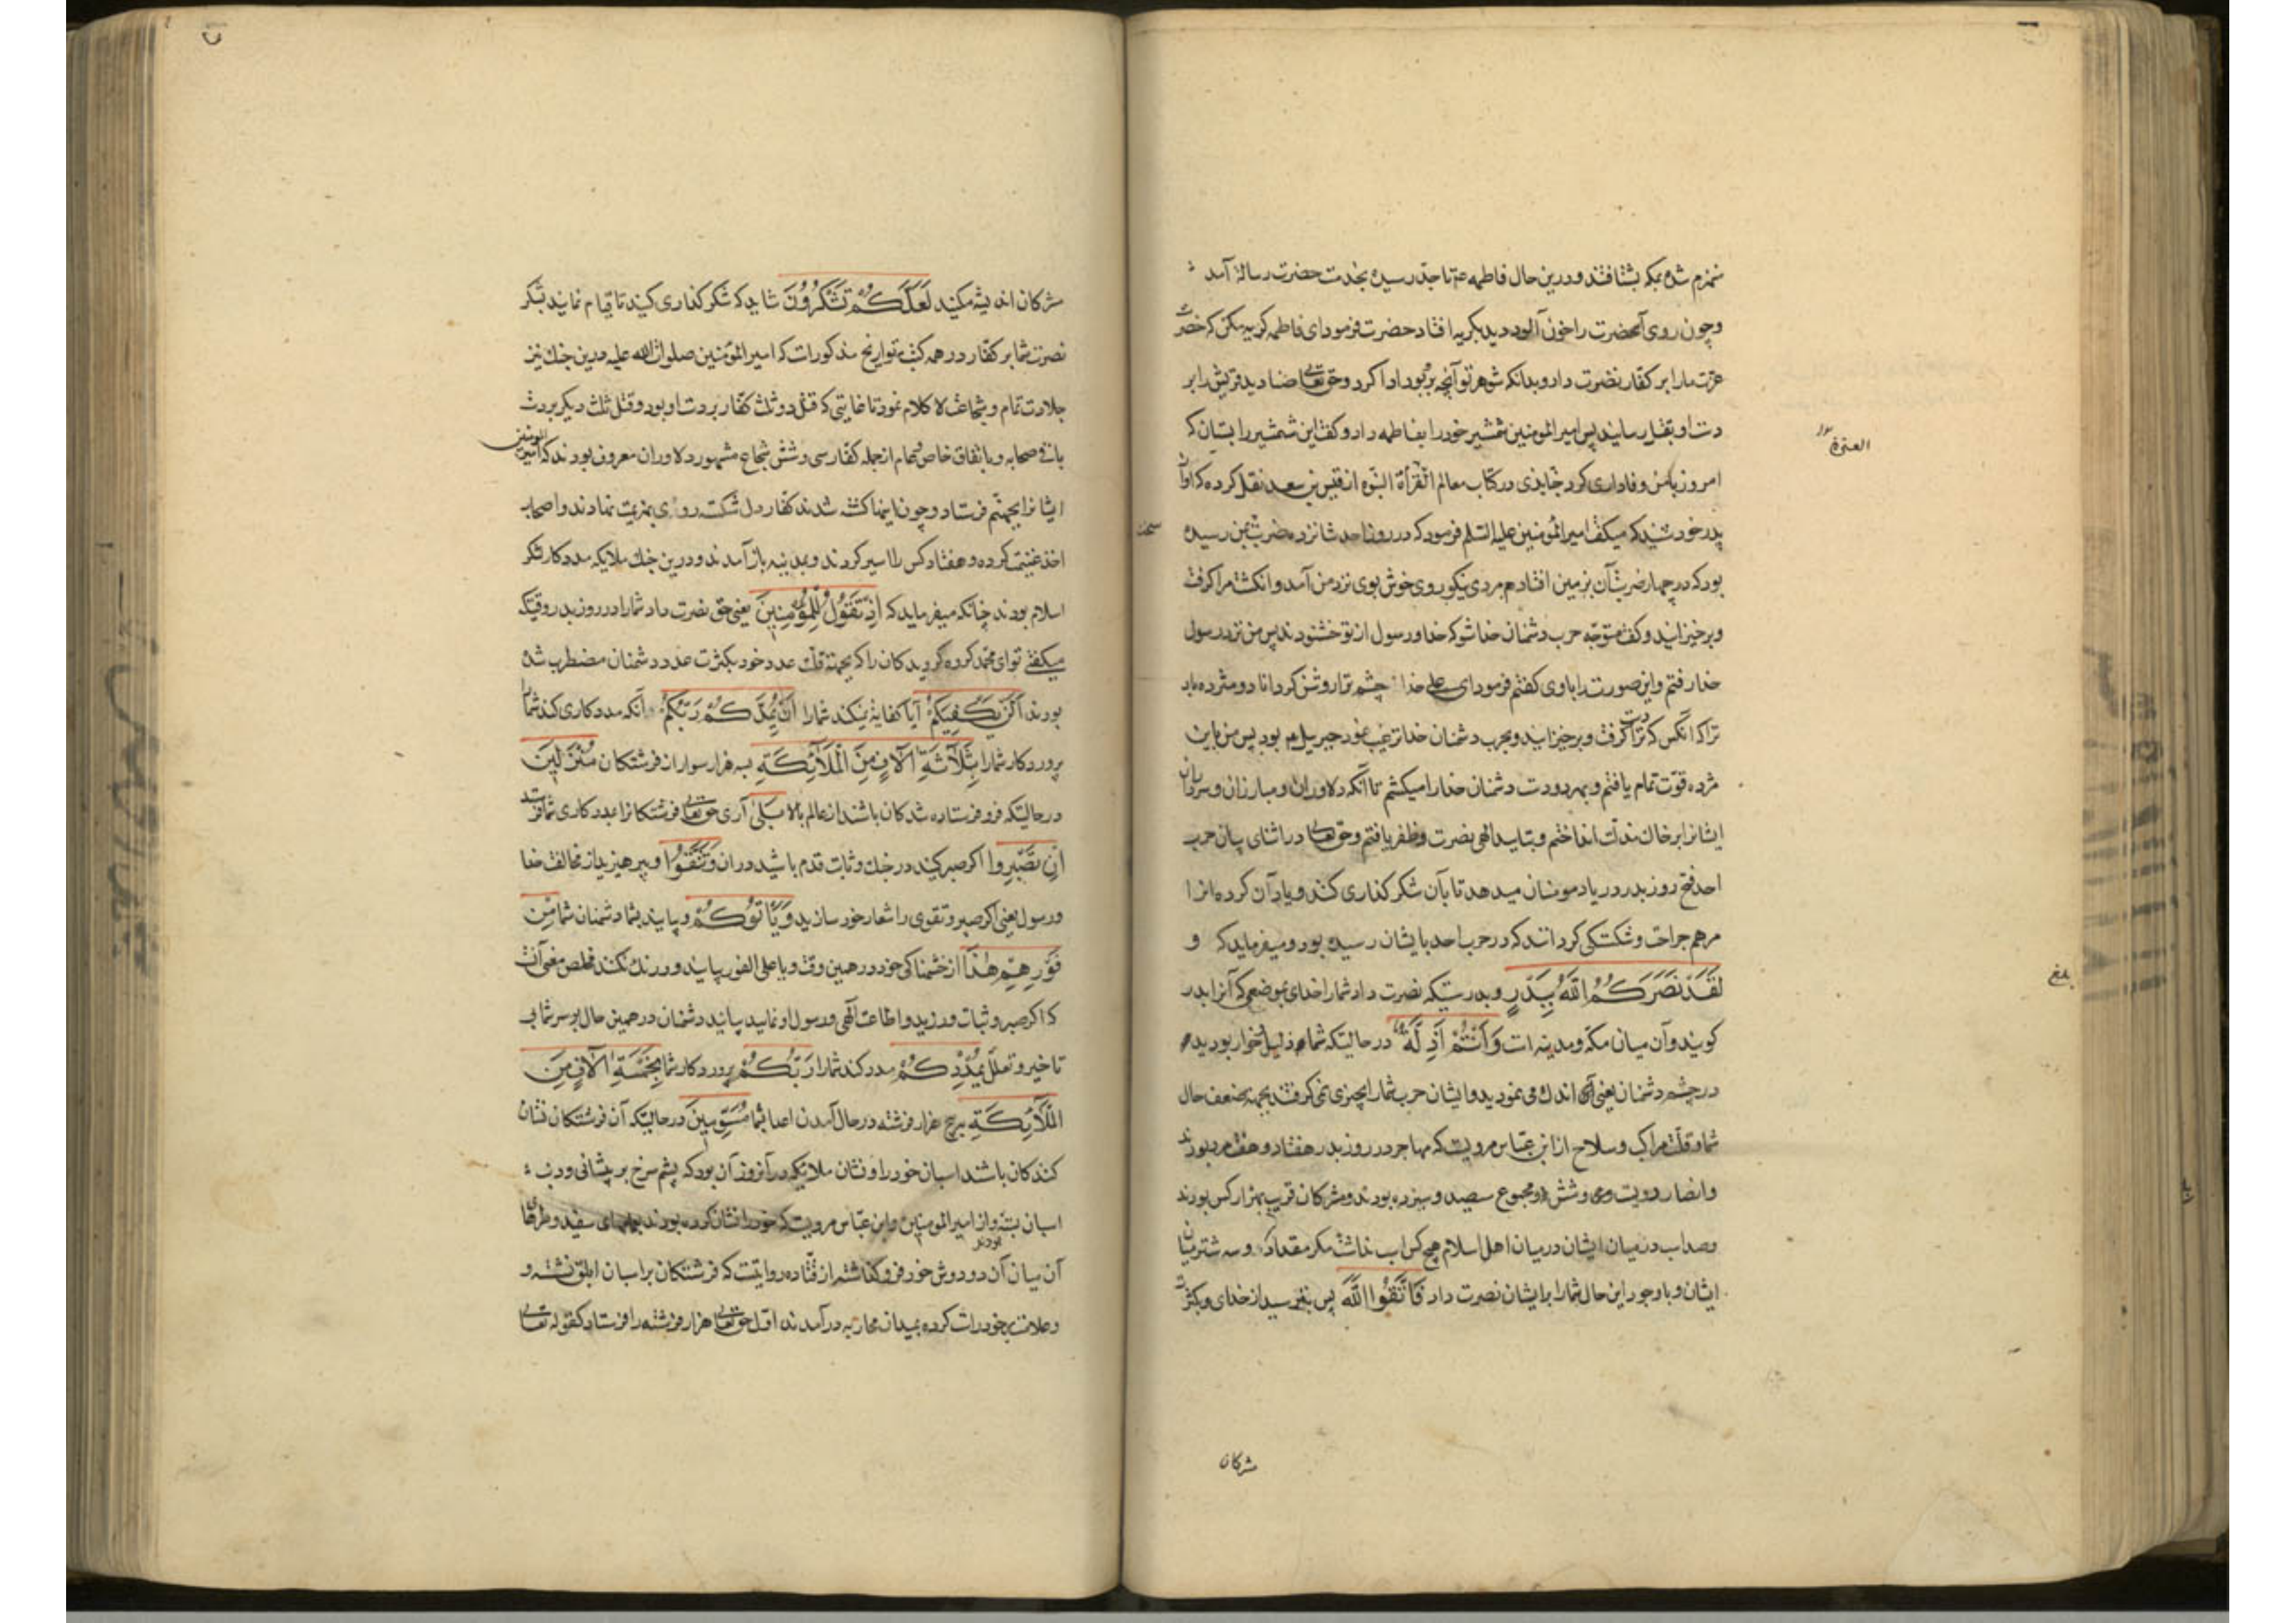 منهزم شده بمکه بشتافتند و درین حال فاطمه ع تا جد رسیده بخدمت حضرت رسالة آمد
و چون روی آنحضرت را خون آلود دید بکریه افتاد حضرت فرمود ای فاطمه کریه مکن که حضرت
عزت ما را بر کفار نصرت داد و بدانکه شوهر تو آنچه برو بود ادا کرد و حق تعالی صنادید قریش را بر
دست او بقتل رسانید پس امیر المومنین شمشیر خود را بفاطمه داد و کفت این شمشیر را بستان که
امروز با من وفاداری کرد جنابذی در کتاب معالم العترة النبوه از قیس بن سعد نقل کرده که او از
پدر خود شنید که میکفت امیر المومنین علیه السلم فرمود که در روز احد شانزده ضربت بمن رسیده
بود که در چهار ضربت آن بزمین افتادم مردی نیکو روی خوش بوی نزد من آمد و انکشت مرا کرفت
و برخیزانید و کفت متوجه حرب دشمنان خدا شو که خدا و رسول از تو خشنودند پس من نزد رسول
خدا رفتم و این صورت را با وی کفتم فرمود ای علی خدا چشم ترا روشن کرداناد و مژده باد
ترا که آنکس که دست ترا کرفت و برخیزانید و بحرب دشمنان خدا ترغیب نمود جبرییل بود پس من باین
مژده قوت تمام یافتم و بهر دو دست دشمنان خدا را میکشتم تا آنکه دلاوران و مبارزان و سرداران
ایشانرا بر خاک مذلت انداختم و بتایید الهی نصرت و ظفر یافتم و حق تعالی در اثنای بیان حرب
احد فتح روز بدر در یاد مومنان میدهد تا بآن شکر کذاری کنند و یاد آن کرده انرا
مرهم جراحت و شکستکی کردانند که در حرب احد بایشان رسیده بود و میفرماید که و
لَقَدْ نَصَرَكُمُ اللّٰهُ بِبَدْرٍ و بدرستیکه نصرت داد شما را خدای بموضعی که آنرا بدر
کویند و آن میان مکه و مدینه است وَأَنْتُمْ أَذِلَّةٌ در حالتیکه شما ذلیل و خوار بودید
در چشم دشمنان یعنی اندک می نمودید و ایشان حرب شما را بچیزی نمی کرفتند بجهة ضعف حال
شما و قلت مراکب و سلاح از ابن عباس مرویست که مهاجر در روز بدر هفتاد و هفت مرد بودند
و انصار دویست و سی و شش و مجموع سیصد و سیزده بودند و مشرکان قریب بهزار کس بودند
و صد اسب در میان ایشان در میان اهل اسلام هیچ کس اسب نداشت مکر مقداد و سه شتر میان
ایشان و با وجود این حال شما را برایشان نصرت داد فَاتَّقُوا اللّٰهَ پس بترسید از خدای و بکثرت
العترة
سخن
بلغ
مشرکان
مشرکان اندیشه مکنید لَعَلَّكُمْ تَشْكُرُونَ شاید که شکر کذاری کنید تا قیام نمایند بشکر
نصرت شما بر کفار در همه کتب تواریخ مذکورست که امیر المؤمنین صلوات الله علیه درین جنک نیز
جلادت تمام و شجاعت لا کلام نمود تا غایتی که قتل دو ثلث کفار بر دست او بود و قتل ثلث دیکر بر دست
باقی صحابه و باتفاق خاص و عام از جمله کفار سی و شش شجاع مشهور دلاوران معروف بودند که امیر المومنین
ایشانرا بجهنم فرستاد و چون اینها کشته شدند کفار دل شکسته روی بهزیمت نهادند و اصحاب
اخذ غنیمت کرده و هفتاد کس را اسیر کردند و بمدینه باز آمدند و درین جنک ملایکه مددکار لشکر
اسلام بودند چنانکه میفرماید که إِذْ تَقُولُ لِلْمُؤْمِنِينَ یعنی حق نصرت داد شما را در روز بدر وقتیکه
میکفتی تو ای محمد کروه کرویدکان را که بجهة قلت عدد خود و بکثرت عدد دشمنان مضطرب شده
بودند أَلَنْ يَكْفِيَكُمْ آیا کفایة نمیکند شما را أَنْ يُمِدَّكُمْ رَبُّكُمْ آنکه مددکاری کند شما را
پروردکار شما را بِثَلَاثَةِ آلَافٍ مِنَ الْمَلَائِكَةِ بسه هزار سوار از فرشتکان مُنْزَلِينَ
در حالتیکه فرو فرستاده شدکان باشند از عالم بالا بَلَى آری حق تعالی فرشتکانرا بمددکاری شما فرستد
إِنْ تَصْبِرُوا اکر صبر کنید در جنک و ثابت قدم باشید در ان وَتَتَّقُوا و بپرهیزید از مخالفت خدا
و رسول یعنی اکر صبر و تقوی را شعار خود سازید وَيَأْتُوكُمْ و بیایند بشما دشمنان شما مِنْ
فَوْرِهِمْ هَٰذَا از خشمناکی خود در همین وقت و یا علی الفور بیایند و درنک نکنند مخلص معنی آنست
که اکر صبر و ثبات ورزید و اطاعت الهی و رسول او نمایید بیایند دشمنان در همین حال بر سر شما بی
تاخیر و تعلل يُمْدِدْكُمْ مدد کند شما را رَبُّكُمْ پروردکار شما بِخَمْسَةِ آلَافٍ مِنَ
الْمَلَائِكَةِ بپنج هزار فرشته در حال آمدن اعدا بشما مُسَوِّمِينَ در حالتیکه آن فرشتکان نشان
کنندکان باشند اسبان خود را و نشان ملایکه در آنروز آن بود که پشم سرخ بر پیشانی و دنب
اسبان بسته و از امیر المومنین و ابن عباس مرویست که خود را نشان کرده بودند بعمامهای سفید و طرفها
آن میان آن دو دوش خود فرو کذاشته بودند از قتاده روایتست که فرشتکان بر اسبان ابلق نشسته و
و علامت بر خود راست کرده بمیدان محاربه در آمدند اول حق تعالی هزار فرشته را فرستاد کقوله تعالی